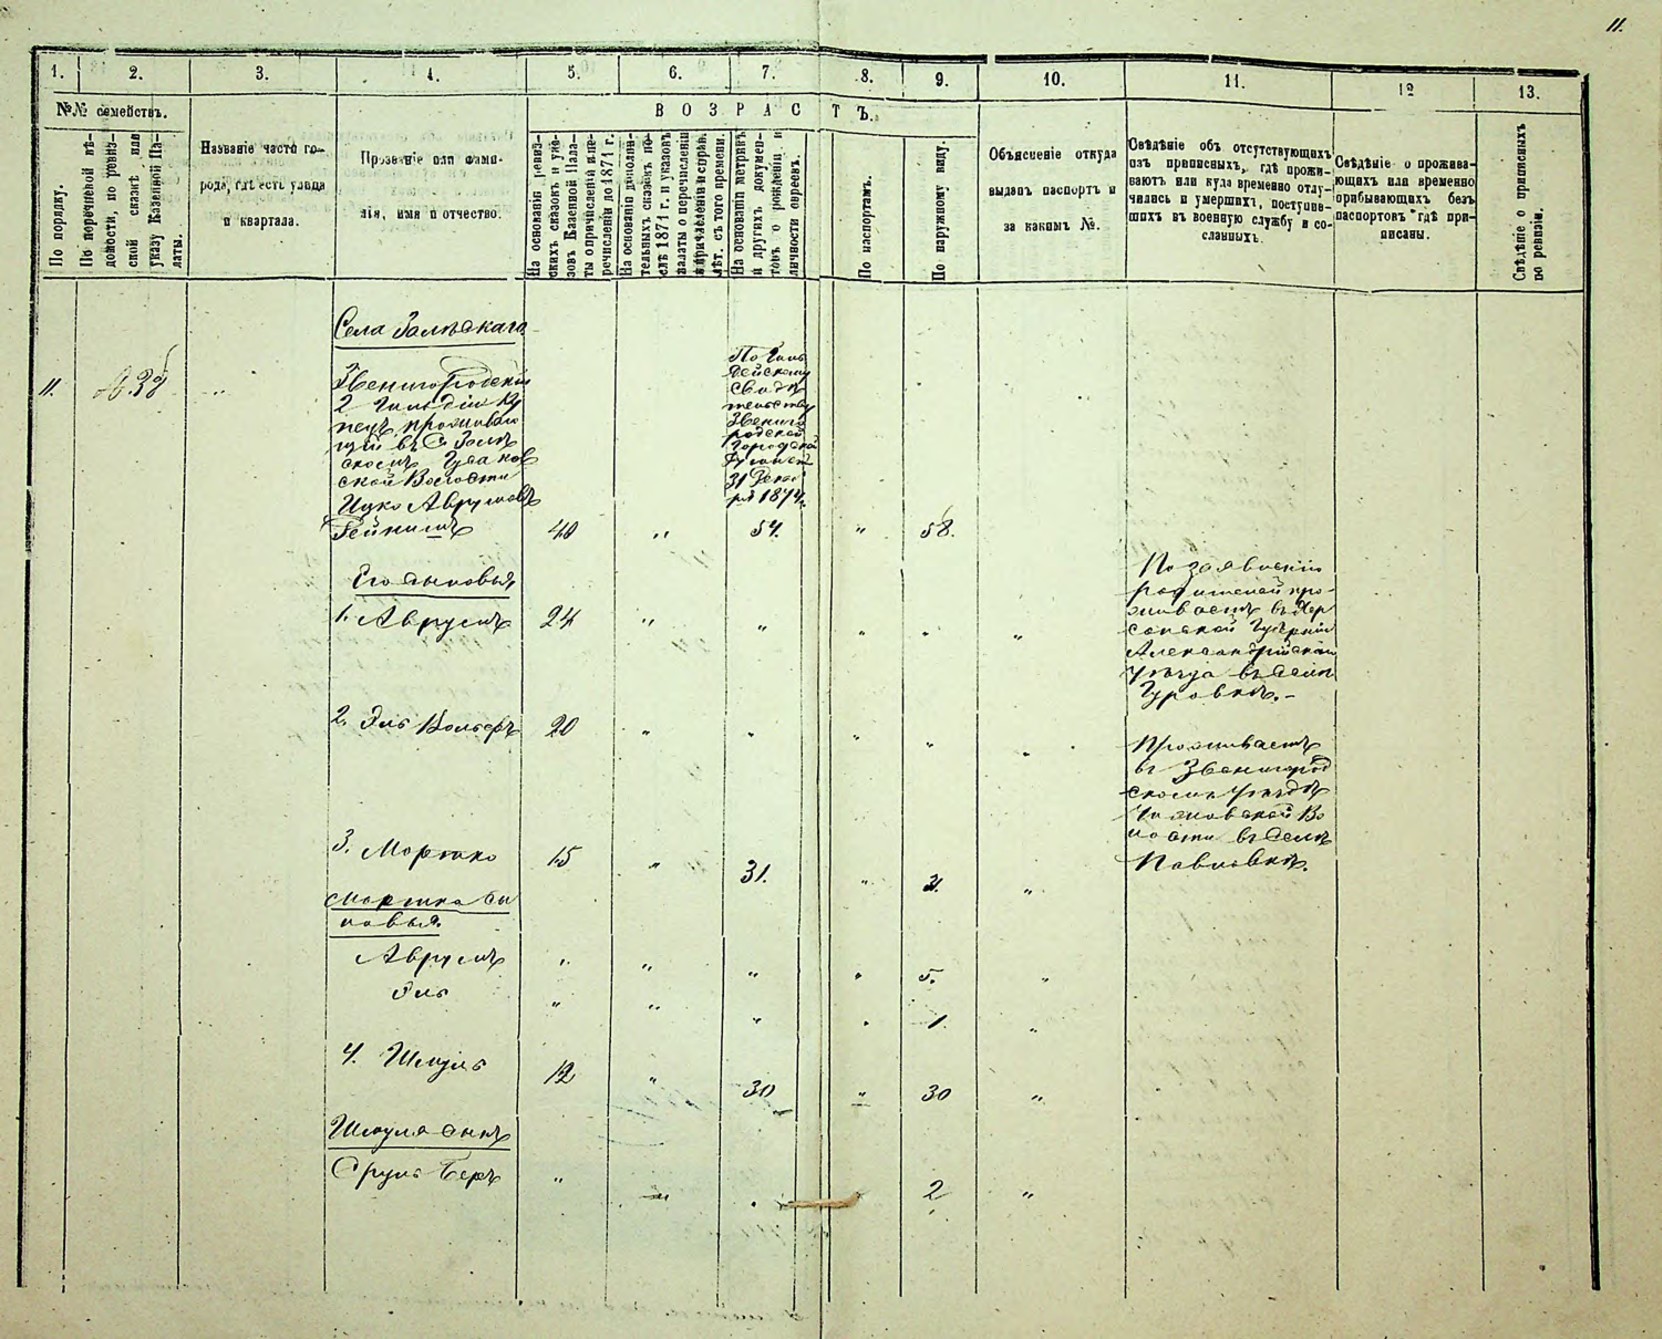 11.
1. 2. 3. 4. 5. 6. 7. 8. 9. 10. 11. 12 13.
№№ семействъ.
ВОЗРАСТЪ.
По порядку.
По перечневой вѣ-
домости, по ревиз-
ской сказкѣ или
указу Казенной Па-
латы.
Названіе части го-
рода, гдѣ есть улица
и квартала.
Прозваніе или фами-
лія, имя и отчество.
На основаніи ревиз-
скихъ сказокъ и ука-
зовъ Казенной Пала-
ты о причисленіи и пе-
речисленіи до 1871 г.
На основаніи дополни-
тельныхъ сказокъ по-
слѣ 1871 г. и указовъ
палаты о перечисленіи
и причисленіи и исправ.
лѣт. съ того времени.
На основаніи метрикъ
и другихъ докумен-
товъ о рожденіи и
личности евреевъ.
По паспортамъ.
По наружному виду.
Объясненіе откуда
выданъ паспортъ и
за какимъ №.
Свѣдѣніе объ отсутствующихъ
изъ приписныхъ, гдѣ прожи-
ваютъ или куда временно отлу-
чились и умершихъ, поступив-
шихъ въ военную службу и со-
сланныхъ.
Свѣдѣніе о прожива-
ющихъ или временно
прибывающихъ безъ
паспортовъ гдѣ при-
писаны.
Свѣдѣніе о приписныхъ
по ревизіи.
Села Залѣскаго
11.
Звенигородскій
2 Гильдіи Ку
пецъ проживаю
щій въ С. Залѣ
скомъ Гусаков
ской Волости
Ицко Аврумовъ
Рейнишъ 40 " 54. " 58.
По Гиль
дейскому
Свидѣ
тельству
Звениго
родской
Городской
Думы
31 Декаб
ря 1874.
Его сыновья
1. Аврумъ 24 " " " " "
По заявленію
родителей про-
живаетъ въ Хер
сонской Губерніи
Александрійскаго
Уѣзда въ селѣ
Гуровкѣ.-
2. Эль Вольфъ 20 " " " " "
Проживаетъ
въ Звенигород
скомъ Уѣздѣ
Волости въ селѣ
Павловкѣ.
3. Мортко 15 " 31. " 31. "
Мортка сы
новья
Аврумъ " " " " 5. "
Эль " " " " 1. "
4. Шмуль 12 " 30 " 30 "
Шмуля сынъ
Сруль Беръ " " " " 2 "